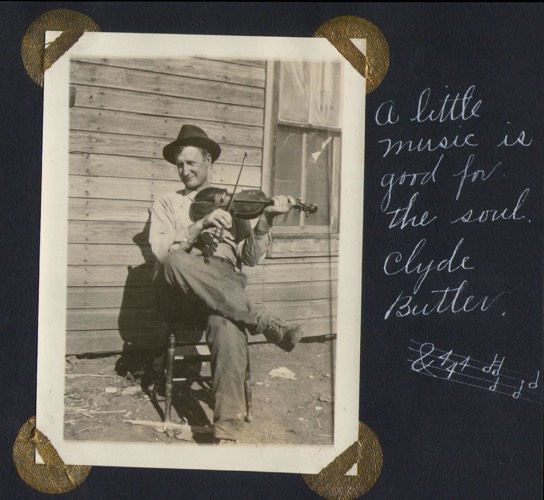 A little
music is
good for
the soul.
Clyde
Butler.